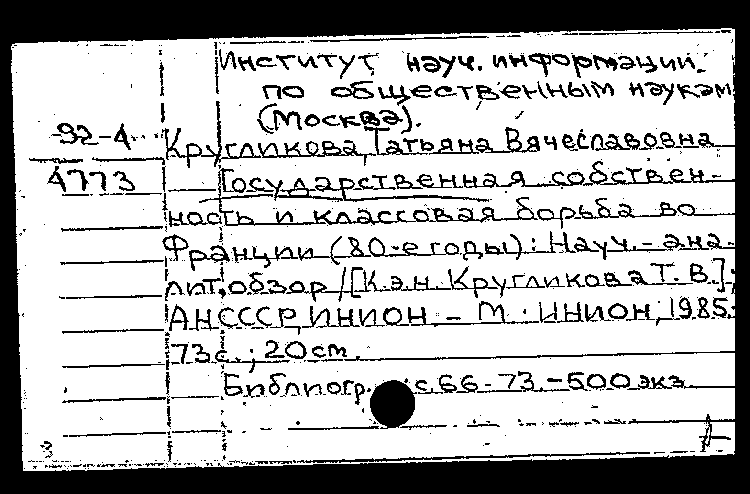 Институт науч. информации
по общественным наукам
(Москва).
92-4
Кругликова Татьяна Вячеславовна
4773
Государственная собствен-
ность и классовая борьба во
Франции (80-е годы): Науч.-ана-
лит. обзор / [К.э.н. Кругликова Т. В.];
АН СССР, ИНИОН. - М.: ИНИОН, 1985.
73 с.; 20 см.
Библиогр.: с. 66-73. - 500 экз.
3